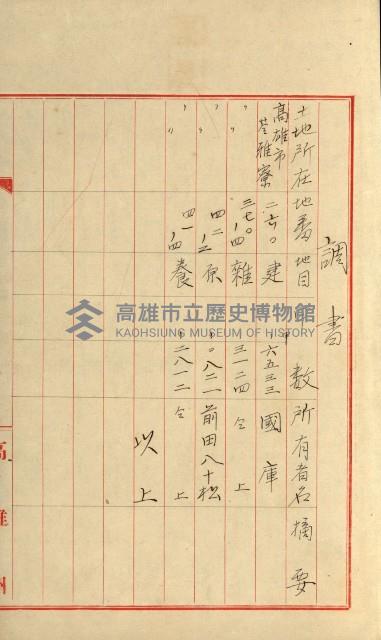 調書
土地所在地番地目　甲數所有者名摘要
高雄市苓雅寮　二六〇　建　六五三三　國庫
〃　〃　三七〇ノ四　雜　三一二四　仝上
〃　〃　四二ノ二　原　〇八二一　前田八十松
〃　〃　四一ノ四　養　二八一二　仝上
以上
高雄州
高雄市立歷史博物館
KAOHSIUNG MUSEUM OF HISTORY